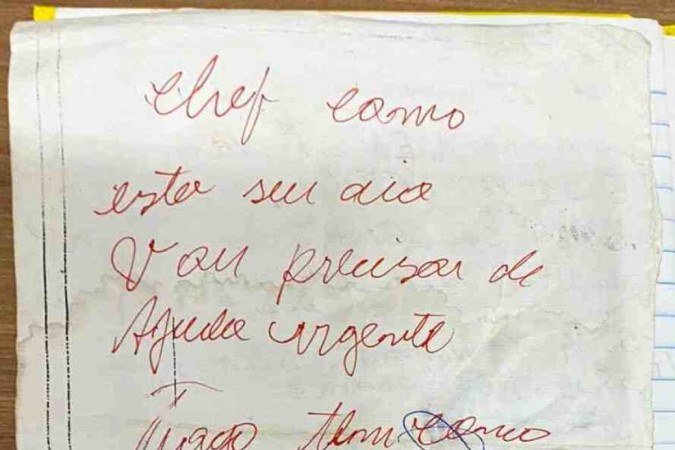 chef como
esta seu dia
Vou precisar de
Ajuda urgente
Tiago